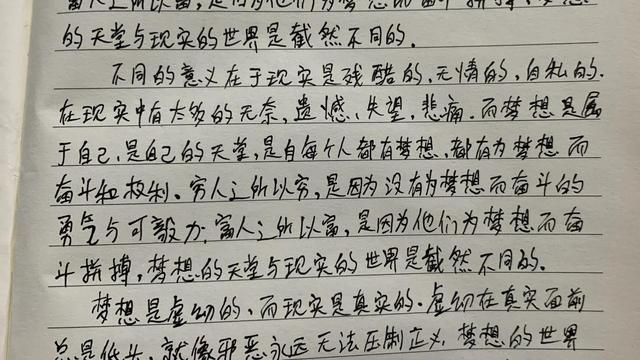 富人之所以富,是因为他们为梦想而奋斗拼搏,梦想
的天堂与现实的世界是截然不同的.
不同的意义在于现实是残酷的,无情的,自私的.
在现实中有太多的无奈,遗憾、失望,悲痛.而梦想是属
于自己,是自己的天堂,是自每个人都有梦想,都有为梦想而
奋斗和权利、穷人之所以穷,是因为没有为梦想而奋斗的
勇气与可毅力;富人之所以富,是因为他们为梦想而奋
斗拼搏,梦想的天堂与现实的世界是截然不同的.
梦想是虚幻的,而现实是真实的.虚幻在真实面前
总是低头,就像邪恶永远无法压制正义,梦想的世界